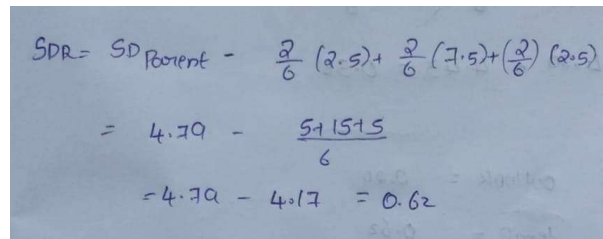 SDR = SD Parent - 2/6 (2.5) + 2/6 (7.5) + (2/6) (2.5)
= 4.79 - 5+15+5/6
= 4.79 - 4.17 = 0.62